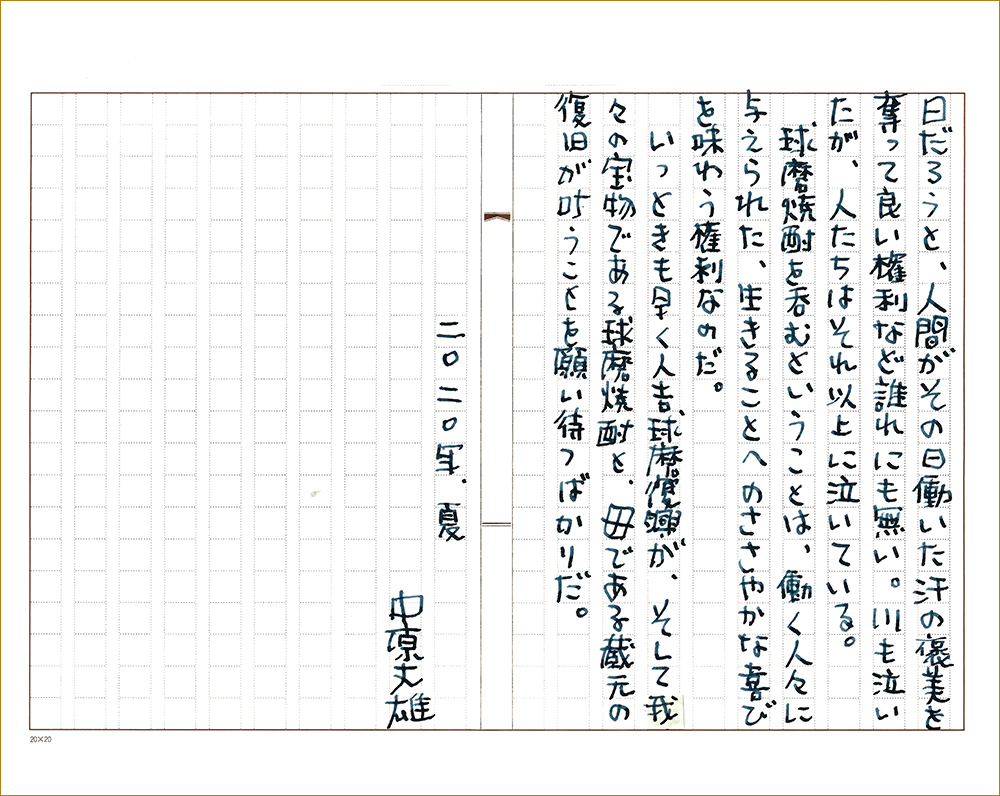 日だろうと、人間がその日働いた汗の褒美を
奪って良い権利など誰れにも無い。川も泣い
たが、人たちはそれ以上に泣いている。
球磨焼酎を呑むということは、働く人々に
与えられた、生きることへのささやかな喜び
を味わう権利なのだ。
いっときも早く人吉、球磨復興が、そして我
々の宝物である球磨焼酎と、母である蔵元の
復旧が叶うことを願い待つばかりだ。
二〇二〇年、夏
中原丈雄
20×20